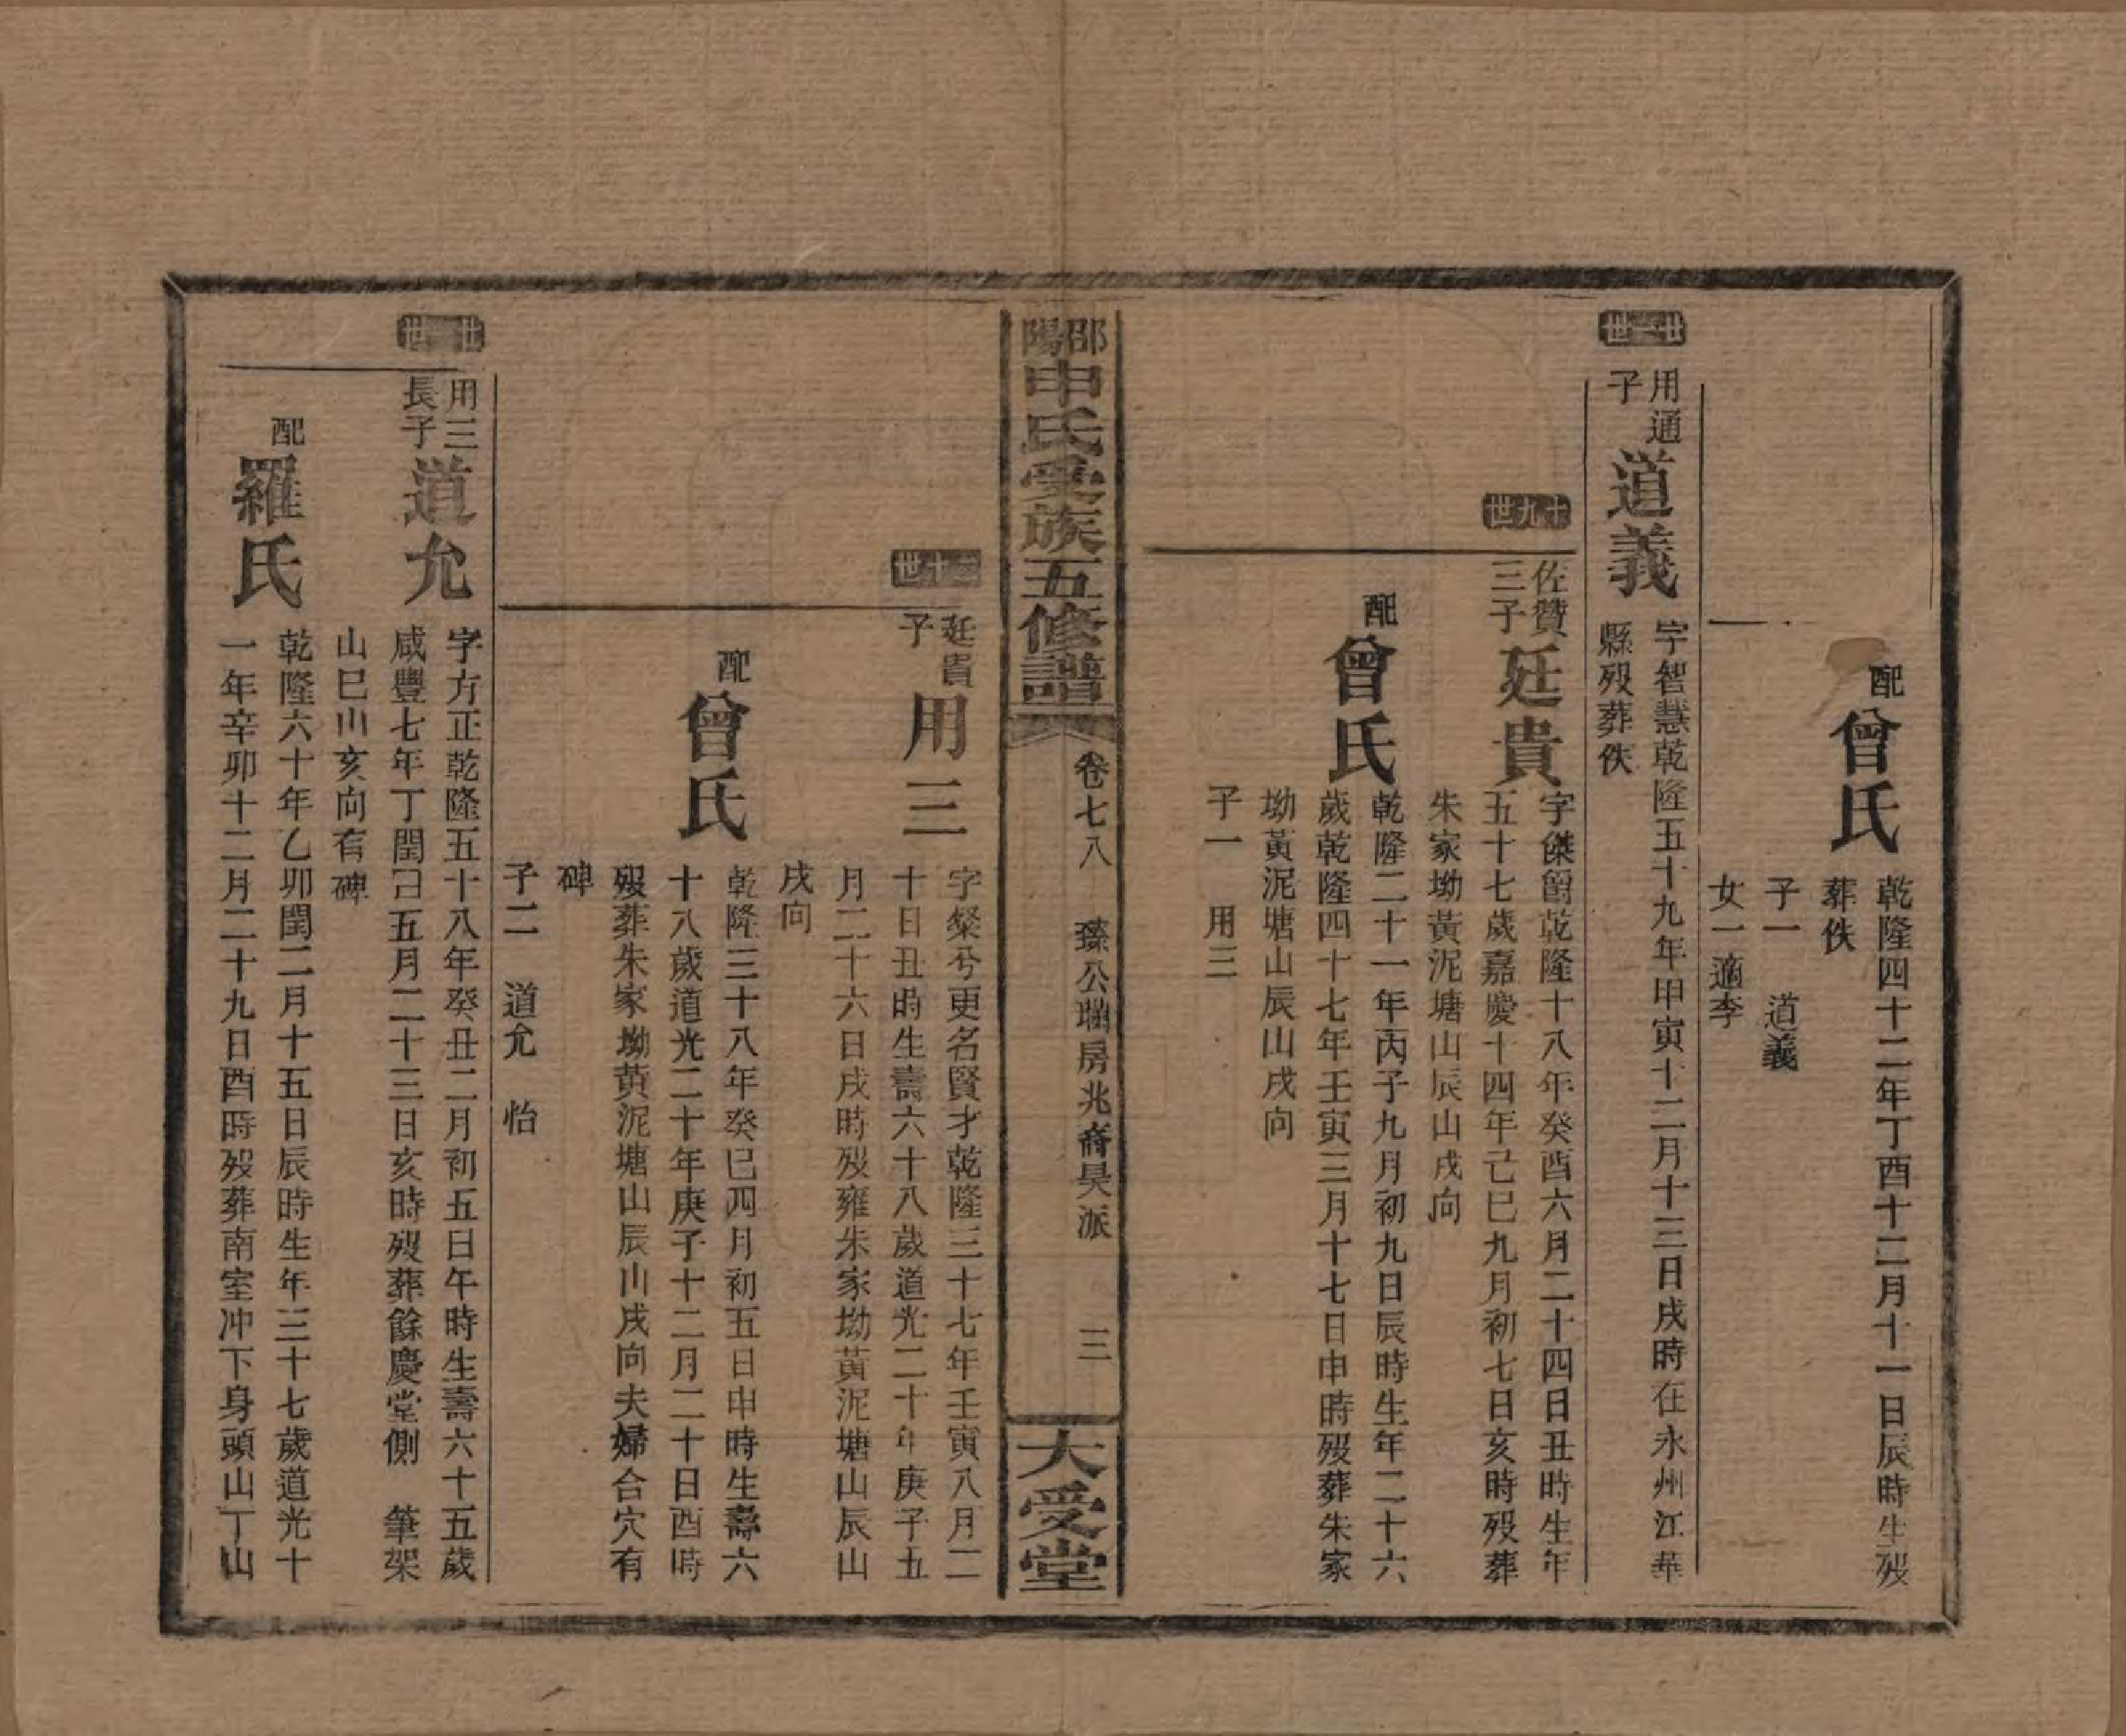 配曾氏乾隆四十二年丁酉十二月十一日辰時生歿
葬佚
子一　道義
女一適李
廿一世
用通
子
道義字智慧乾隆五十九年甲寅十二月十三日戌時在永州江華
縣歿葬佚
十九世
佐贊
三子
廷貴字傑爵乾隆十八年癸酉六月二十四日丑時生年
五十七歲嘉慶十四年己巳九月初七日亥時歿葬
朱家坳黃泥塘山辰山戌向
配曾氏乾隆二十一年丙子九月初九日辰時生年二十六
歲乾隆四十七年壬寅三月十七日申時歿葬朱家
坳黃泥塘山辰山戌向
子一　用三
邵陽申氏受族五修譜
卷七八　臻公瑞房兆裔昊派　三
大受堂
二十世
廷貴
子
用三字粲兮更名賢才乾隆三十七年壬寅八月二
十日丑時生壽六十八歲道光二十年庚子五
月二十六日戌時歿雍朱家坳黃泥塘山辰山
戌向
配曾氏乾隆三十八年癸巳四月初五日申時生壽六
十八歲道光二十年庚子十二月二十日酉時
歿葬朱家坳黃泥塘山辰山戌向夫婦合穴有
碑
子二　道允　怡
廿一世
用三
長子
道允字方正乾隆五十八年癸丑二月初五日午時生壽六十五歲
咸豐七年丁閏巳五月二十三日亥時歿葬餘慶堂側　筆架
山巳山亥向有碑
配羅氏乾隆六十年乙卯閏二月十五日辰時生年三十七歲道光十
一年辛卯十二月二十九日酉時歿葬南室冲下身頭山丁山